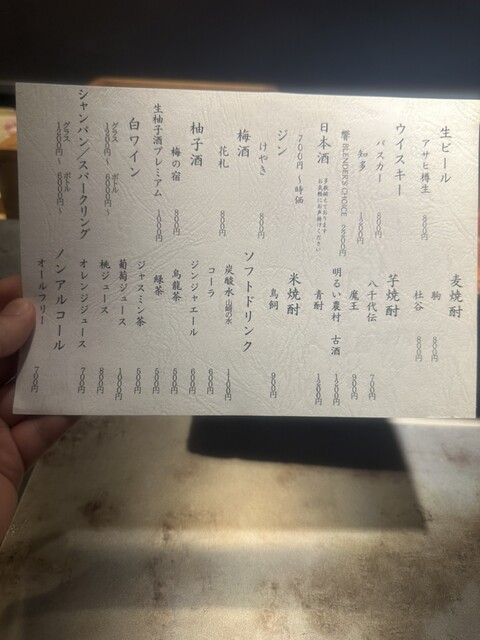 生ビール
アサヒ樽生 800円
ウイスキー
バスカー 800円
知多 1200円
響 BLENDER'S CHOICE 2500円
日本酒
700円〜時価
お気軽にお声掛けください
ジン
けやき 800円
梅酒
花札 800円
柚子酒
梅の宿 800円
生柚子酒プレミアム 1000円
白ワイン
グラス 1200円〜 ボトル 6000円〜
シャンパン/スパークリング
グラス 1200円〜 ボトル 6000円〜
麦焼酎
駒 800円
杜谷 800円
芋焼酎
八千代伝 700円
魔王 900円
明るい農村、古酒 1200円
青酎 1200円
米焼酎
鳥飼 900円
ソフトドリンク
炭酸水 山崎の水 1100円
コーラ 600円
ジンジャエール 600円
烏龍茶 500円
緑茶 500円
ジャスミン茶 500円
葡萄ジュース 1000円
桃ジュース 800円
オレンジジュース 700円
ノンアルコール
オールフリー 700円